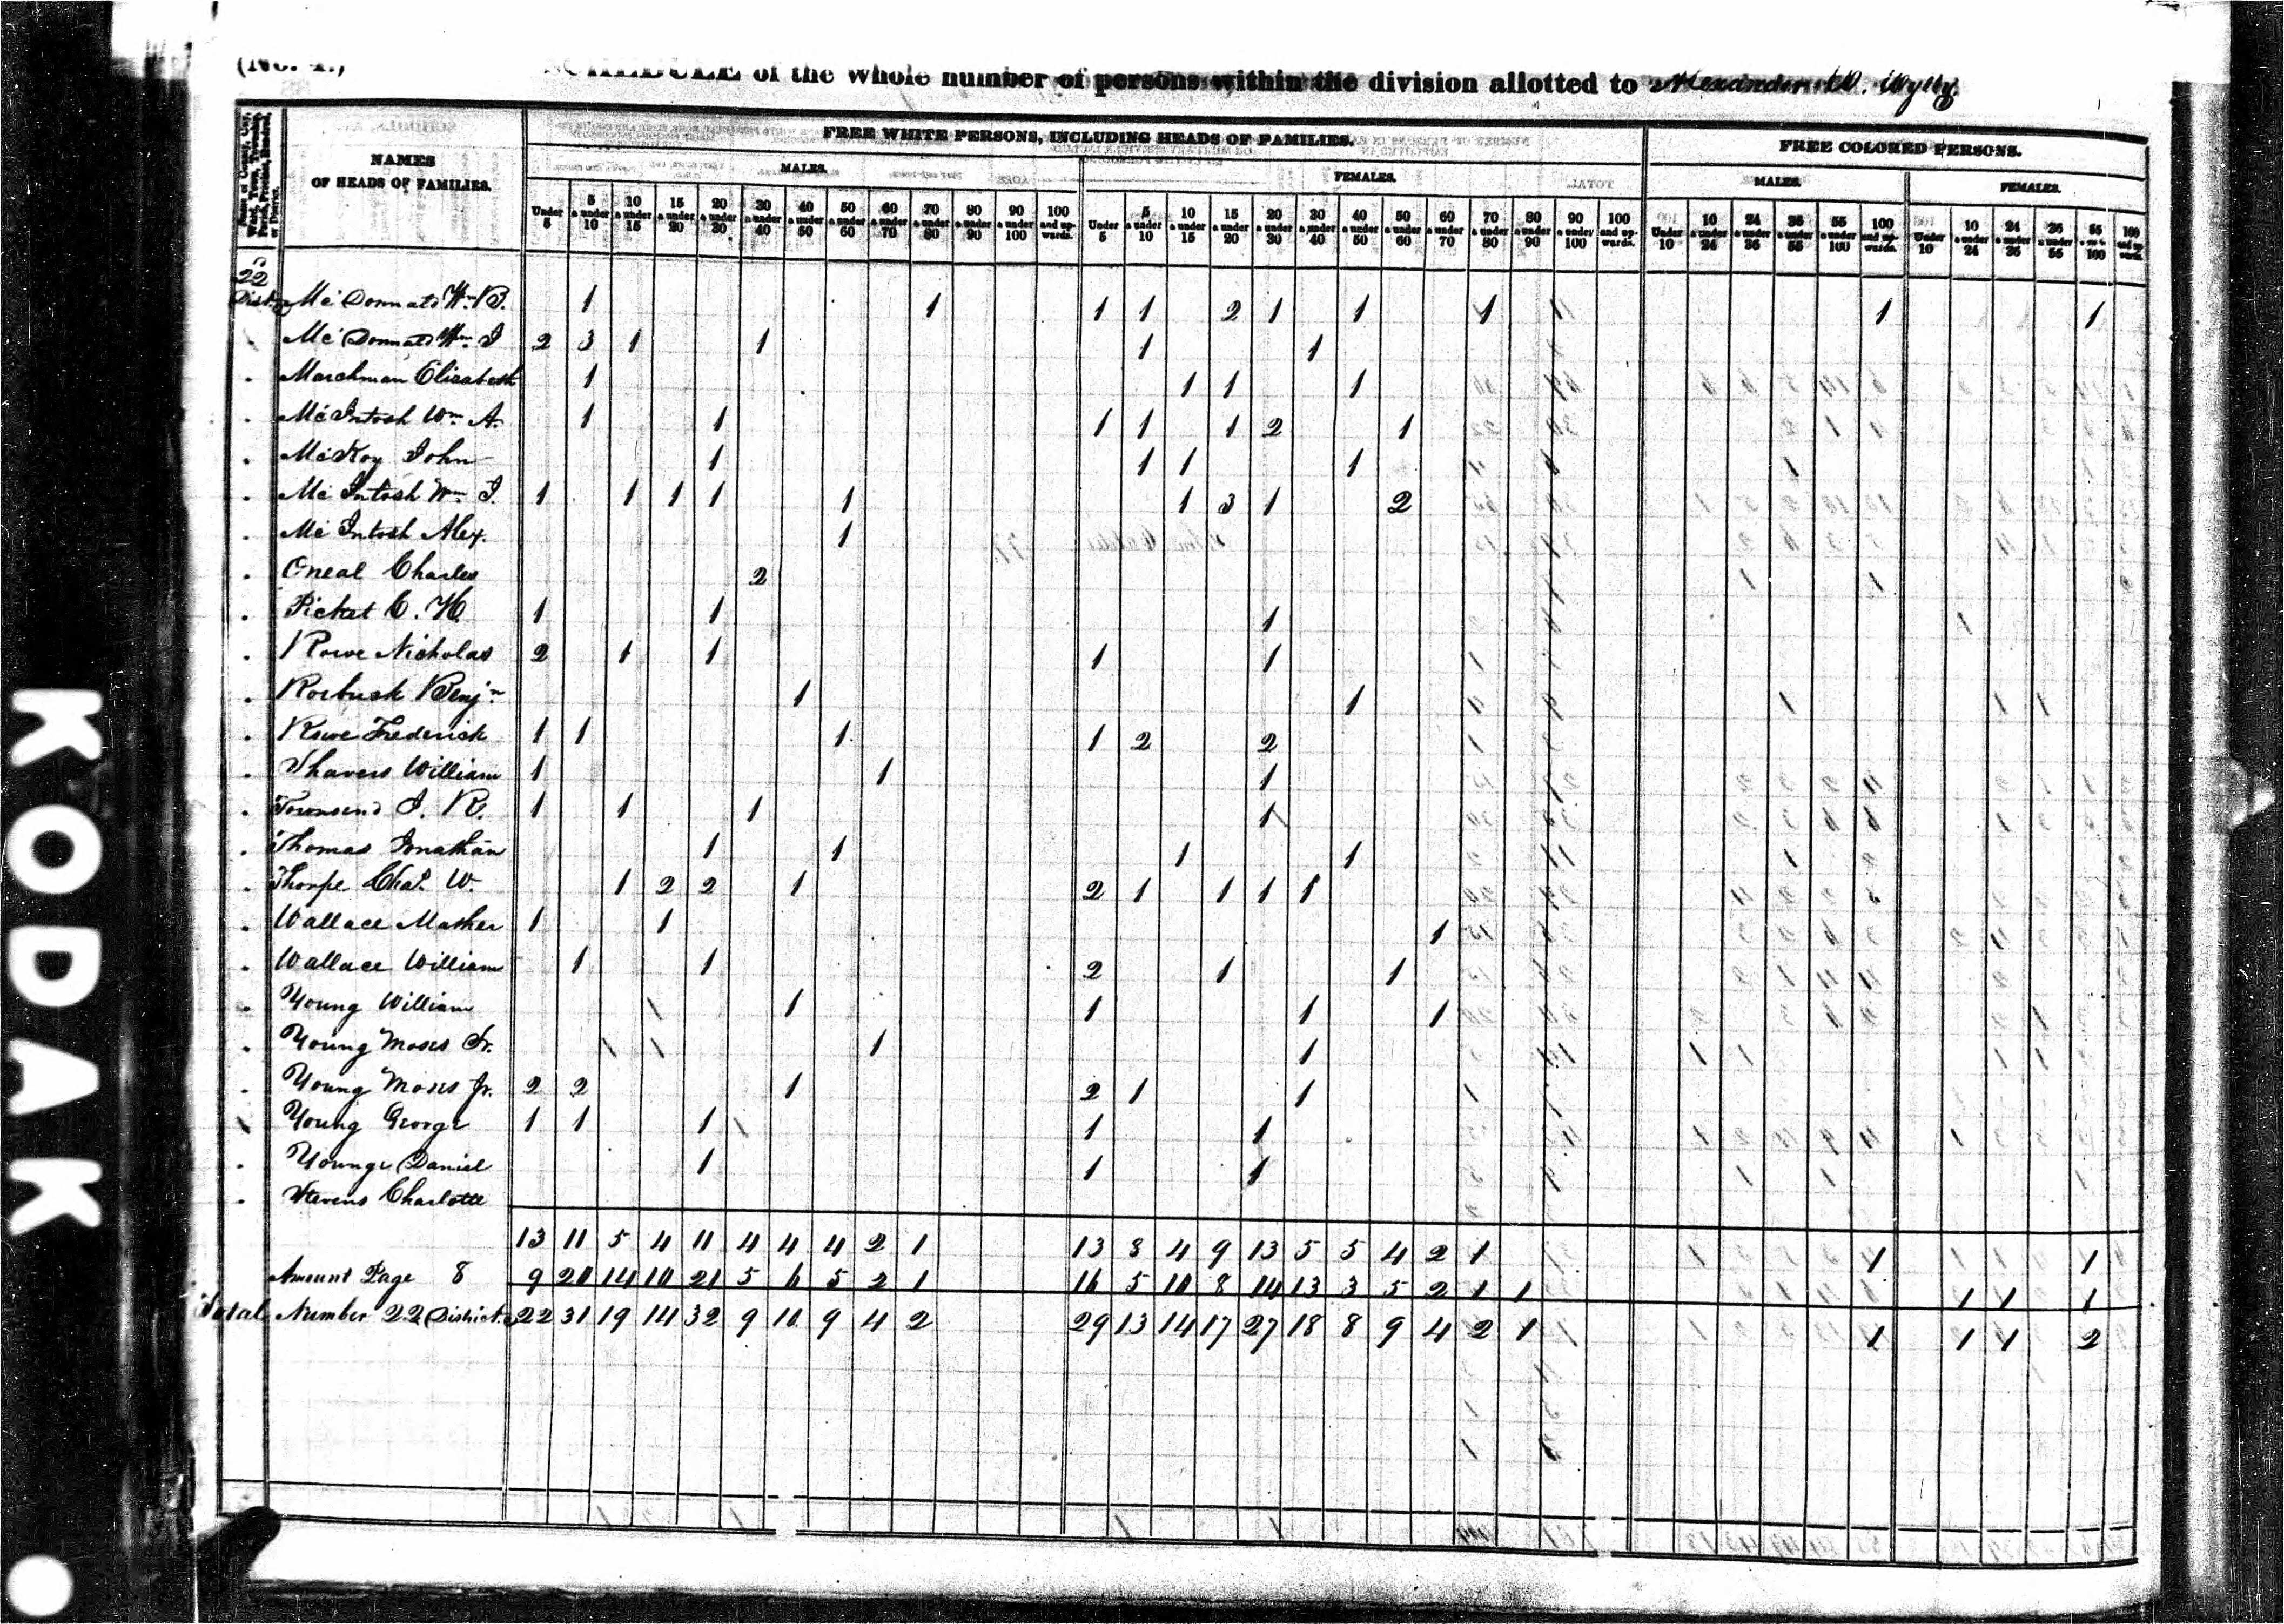 (No. 1.) SCHEDULE of the whole number of persons within the division allotted to Alexander W. Wylly
Name of County, City, Ward, Town, Township, Parish, Precinct, Hundred, or District.
NAMES OF HEADS OF FAMILIES.
FREE WHITE PERSONS, INCLUDING HEADS OF FAMILIES.
FREE COLORED PERSONS.
MALES. FEMALES. MALES. FEMALES.
Under 5 5 & under 10 10 & under 15 15 & under 20 20 & under 30 30 & under 40 40 & under 50 50 & under 60 60 & under 70 70 & under 80 80 & under 90 90 & under 100 100 and upwards. Under 5 5 & under 10 10 & under 15 15 & under 20 20 & under 30 30 & under 40 40 & under 50 50 & under 60 60 & under 70 70 & under 80 80 & under 90 90 & under 100 100 and upwards. Under 10 10 & under 24 24 & under 36 36 & under 55 55 & under 100 100 and upwards. Under 10 10 & under 24 24 & under 36 36 & under 55 55 & under 100 100 and upwards.
22
Dist. Mc Donnald Wm. B. 1 1 1 1 2 1 1 1 1 1
Mc Donnald Wm. J 2 3 1 1 1 1
Marchman Elizabeth 1 1 1 1
McIntosh Wm. A. 1 1 1 1 1 2 1
McKoy John 1 1 1 1
Mc Intosh Wm. J. 1 1 1 1 1 1 3 1 2
Mc Intosh Alex. 1
Oneal Charles 2
Picket C. H. 1 1 1
Rowe Nicholas 2 1 1 1 1
Roebuck Benjn. 1 1
Rowe Frederick 1 1 1 1 2 2
Shavers William 1 1 1
Townsend J. R. 1 1 1 1
Thomas Jonathan 1 1 1 1
Thorpe Chas. W. 1 2 2 1 2 1 1 1 1
Wallace Mather 1 1 1
Wallace William 1 1 2 1 1
Young William 1 1 1 1 1
Young Moses Sr. 1 1 1 1
Young Moses Jr. 2 2 1 2 1 1
Young George 1 1 1 1 1
Younge Daniel 1 1 1
Stevens Charlotte
13 11 5 4 11 4 4 4 2 1 13 8 4 9 13 5 5 4 2 1 1 1
Amount Page 8 9 20 14 10 21 5 6 5 2 1 16 5 10 8 14 13 3 5 2 1 1 1 1 1
Total Number 22 District 22 31 19 14 32 9 10 9 4 2 29 13 14 17 27 18 8 9 4 2 1 1 1 1 2
KODAK